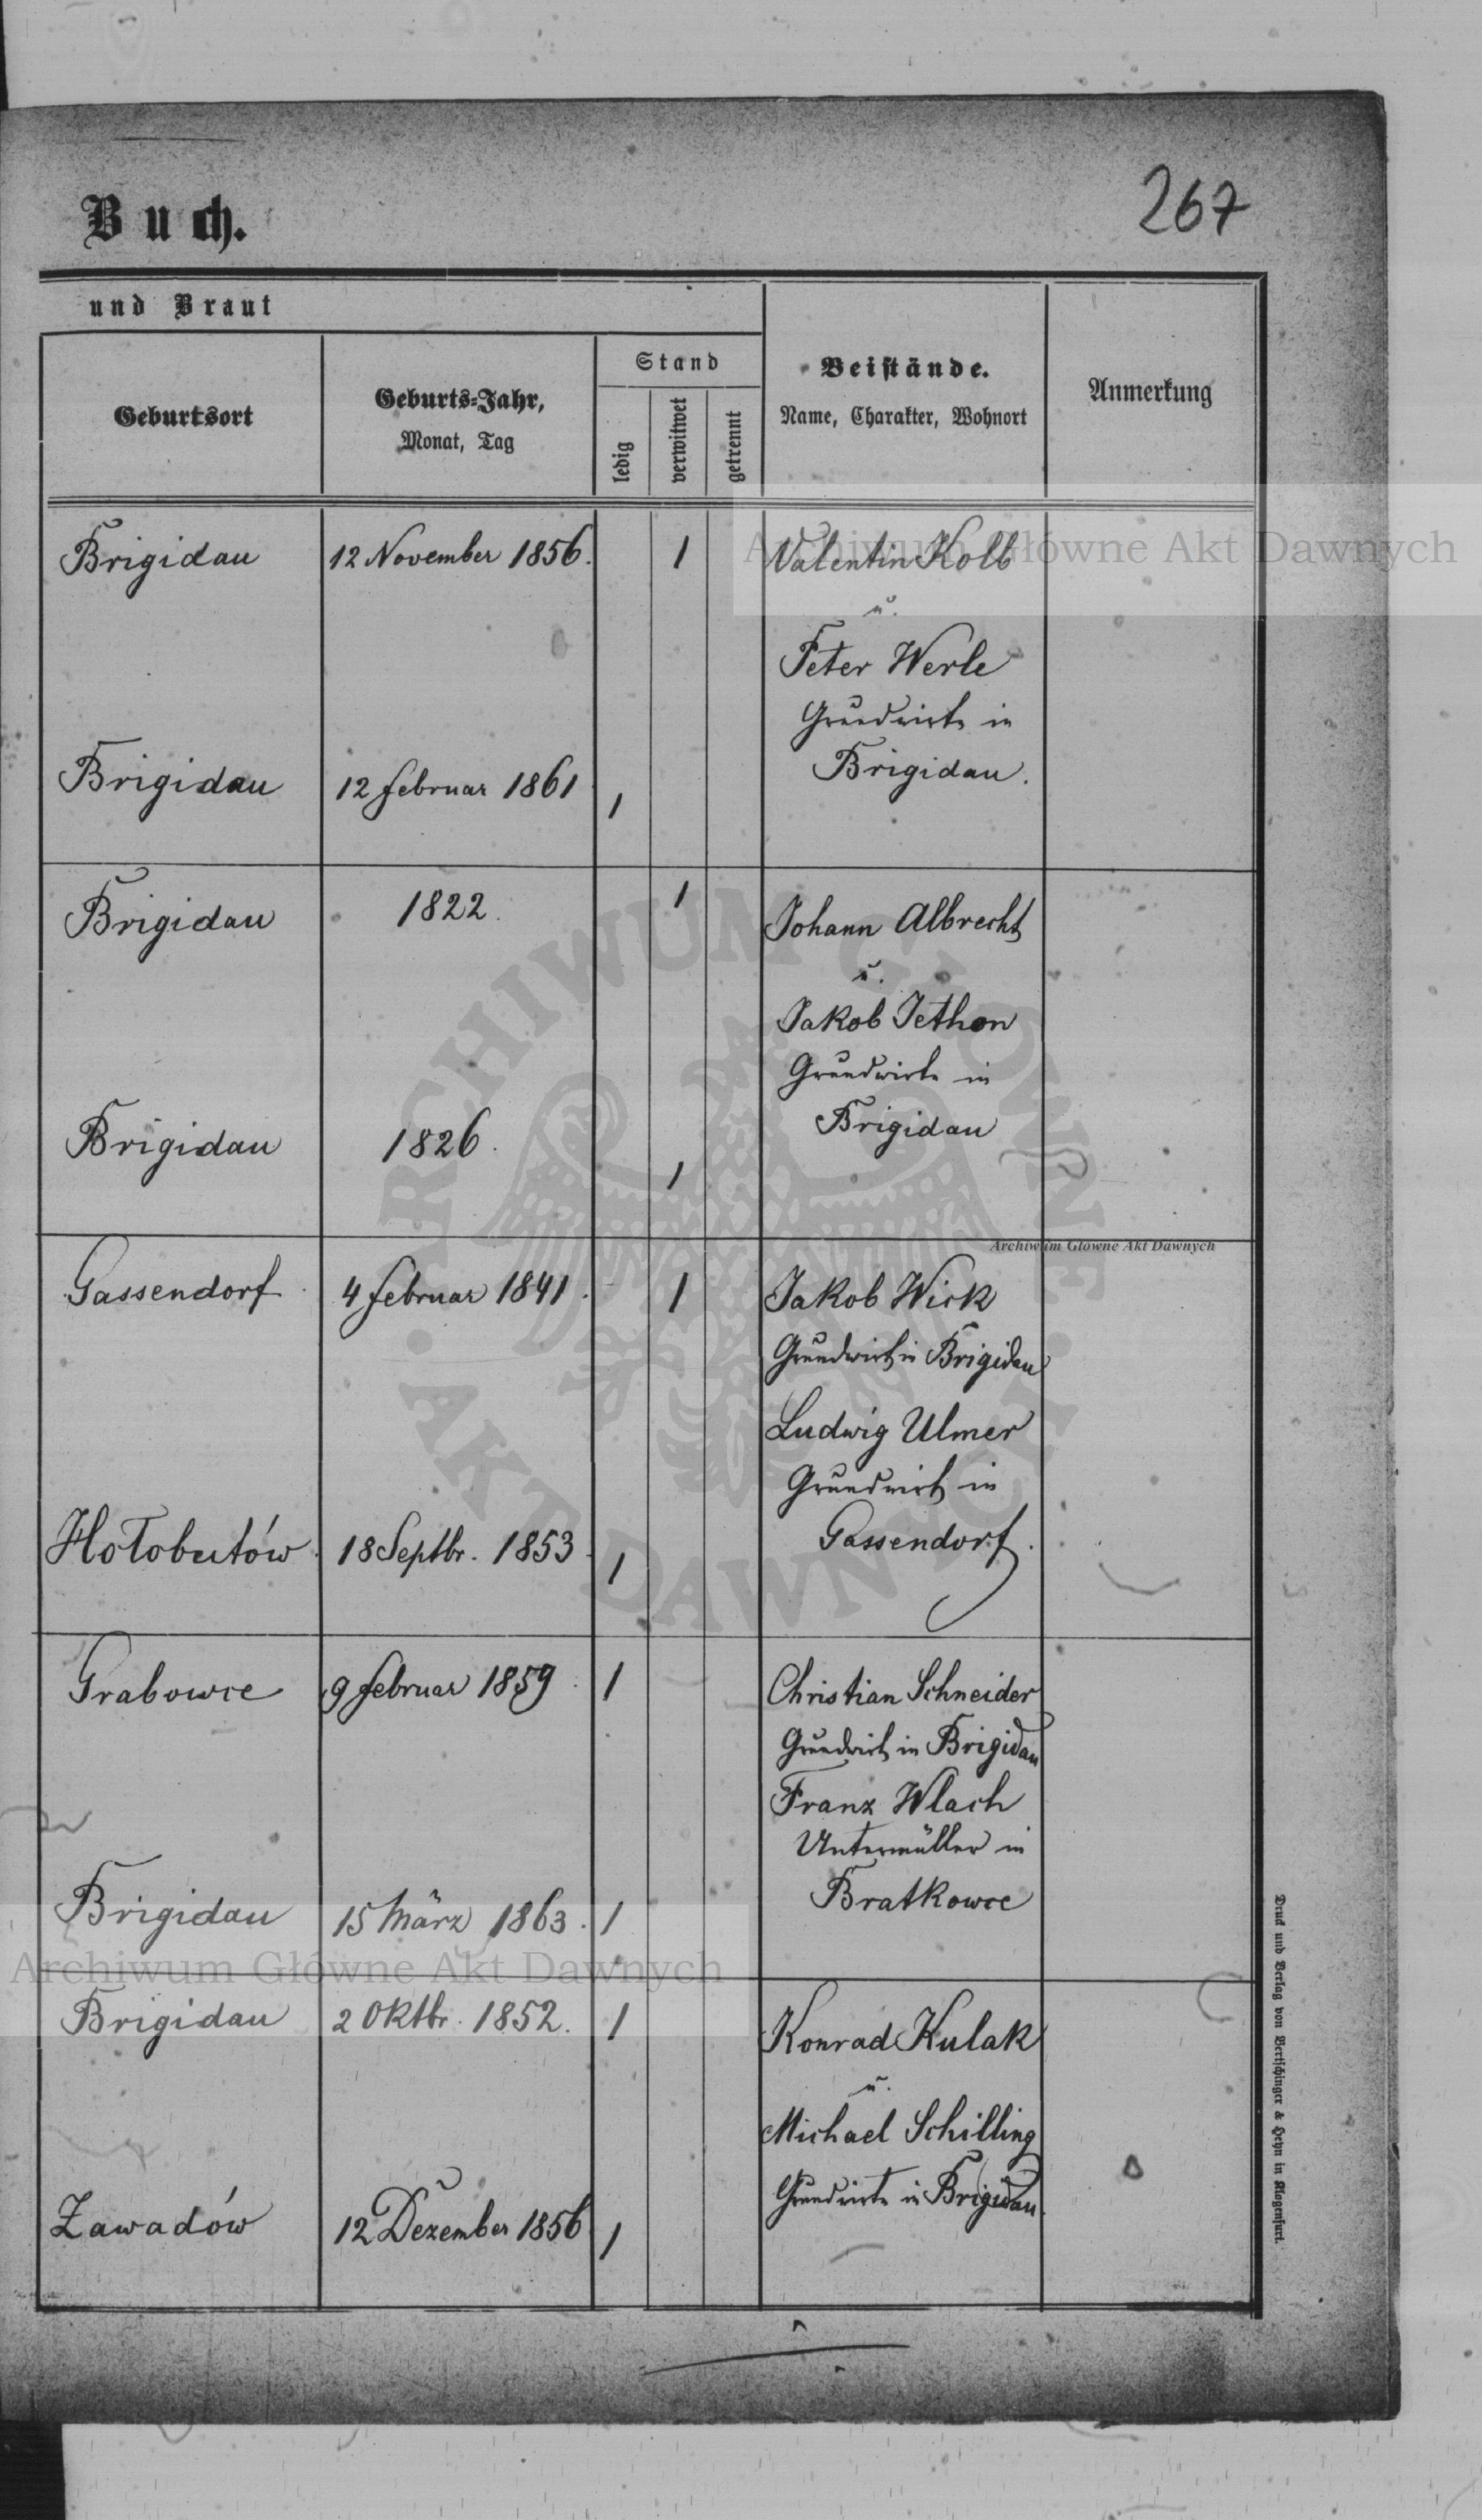 267
Buch.
und Braut
Geburtsort
Geburts-Jahr,
Monat, Tag
Stand
ledig
verwitwet
getrennt
Beistände.
Name, Charakter, Wohnort
Anmerkung
Brigidau
12 November 1856.
1
Valentin Kolb
u.
Peter Werle
Grundwirte in
Brigidau.
Brigidau
12 Februar 1861
1
Brigidau
1822.
1
Johann Albrecht
u.
Jakob Jethon
Grundwirte in
Brigidau
Brigidau
1826.
1
Gassendorf
4 Februar 1841.
1
Jakob Wick
Grundwirt in Brigidau
Ludwig Ulmer
Grundwirt in
Gassendorf.
Hołobutów.
18 Septbr. 1853.
1
Grabowce
9 Februar 1859.
1
Christian Schneider
Grundwirt in Brigidau
Franz Wlach
Untermüller in
Bratkowce
Brigidau
15 März 1863.
1
Brigidau
2 Oktbr. 1852.
1
Konrad Kulak
u.
Michael Schilling
Grundwirte in Brigidau.
Zawadów
12 Dezember 1856
1
Druck und Verlag von Bertschinger & Heyn in Klagenfurt.
Archiwum Główne Akt Dawnych
Archiwum Główne Akt Dawnych
Archiwum Główne Akt Dawnych
ARCHIWUM GŁÓWNE
AKT DAWNYCH